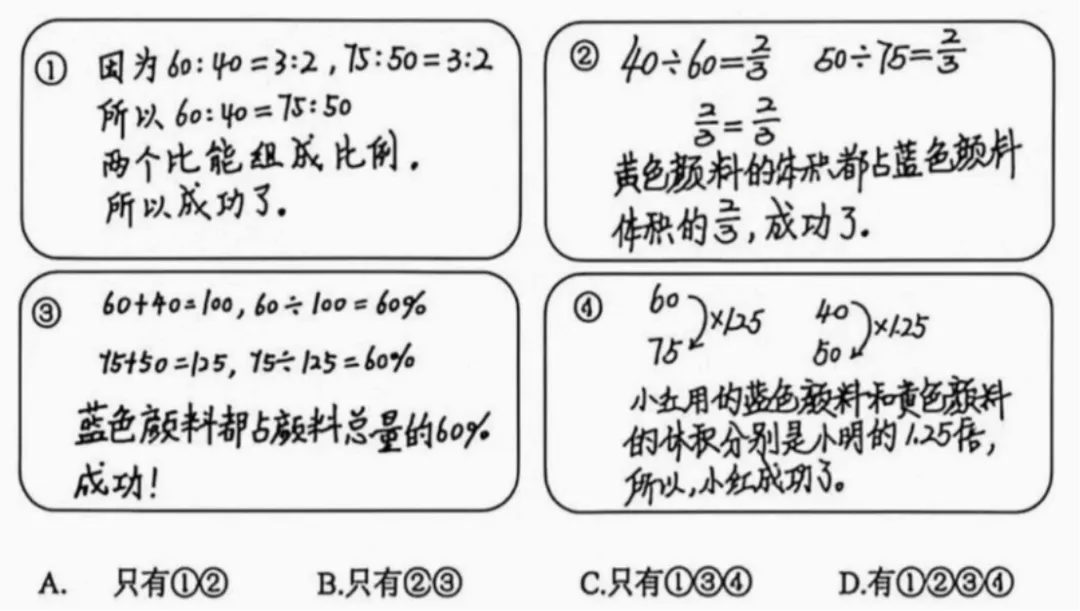 ① 因为60:40=3:2,75:50=3:2
所以60:40=75:50
两个比能组成比例.
所以成功了。
② 40÷60=2/3 50÷75=2/3
2/3=2/3
黄色颜料的体积都占蓝色颜料
体积的2/3,成功了.
③ 60+40=100,60÷100=60%
75+50=125,75÷125=60%
蓝色颜料都占颜料总量的60%
成功!
④ 60 ×1.25 40 ×1.25
75 50
小红用的蓝色颜料和黄色颜料
的体积分别是小明的1.25倍,
所以,小红成功了。
A. 只有①② B.只有②③ C.只有①③④ D.有①②③④